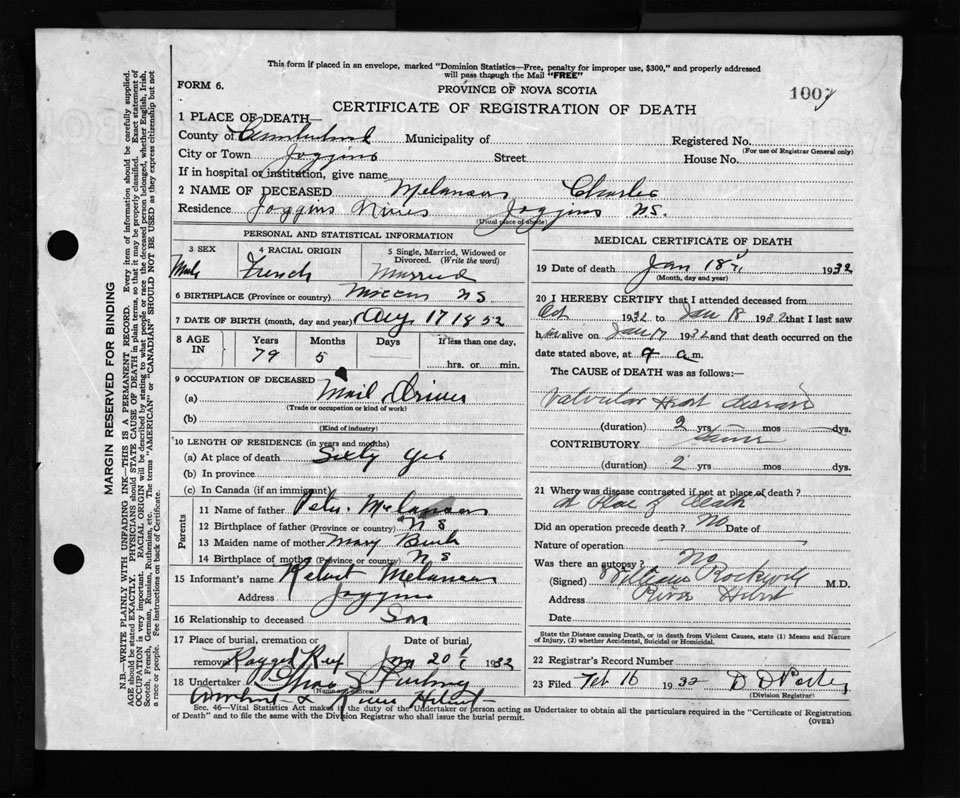 This form if placed in an envelope, marked "Dominion Statistics—Free, penalty for improper use, $300," and properly addressed
will pass thaough the Mail "FREE"
FORM 6.
PROVINCE OF NOVA SCOTIA
1007
CERTIFICATE OF REGISTRATION OF DEATH
1 PLACE OF DEATH—
County of Cumberland Municipality of Registered No.
(For use of Registrar General only)
City or Town Joggins Street House No.
If in hospital or institution, give name
2 NAME OF DECEASED Melanson Charles
Residence Joggins Mines Joggins NS.
(Usual place of abode)
PERSONAL AND STATISTICAL INFORMATION
3 SEX 4 RACIAL ORIGIN 5 Single, Married, Widowed or
Divorced. (Write the word)
Male French Married
6 BIRTHPLACE (Province or country) NS
7 DATE OF BIRTH (month, day and year) Aug 17 1852
8 AGE IN Years Months Days If less than one day,
79 5 hrs. or min.
9 OCCUPATION OF DECEASED
(a) Mail Driver
(Trade or occupation or kind of work)
(b)
(Kind of industry)
10 LENGTH OF RESIDENCE (in years and months)
(a) At place of death Sixty yrs
(b) In province
(c) In Canada (if an immigrant)
Parents
11 Name of father Peter Melanson
12 Birthplace of father (Province or country) NS
13 Maiden name of mother Mary
14 Birthplace of mother (Province or country) NS
15 Informant's name Melanson
Address Joggins
16 Relationship to deceased Son
17 Place of burial, cremation or Date of burial,
removal Ragged Reef Jan 20 1932
18 Undertaker
(Name and address)
MEDICAL CERTIFICATE OF DEATH
19 Date of death Jan 18 1932
(Month, day and year)
20 I HEREBY CERTIFY that I attended deceased from
Oct 1932 to Jan 18 1932 that I last saw
him alive on Jan 17 1932 and that death occurred on the
date stated above, at a.m.
The CAUSE of DEATH was as follows:—
Valvular Heart disease
(duration) 2 yrs mos dys.
CONTRIBUTORY
(duration) 2 yrs mos dys.
21 Where was disease contracted if not at place of death?
at Place of death
Did an operation precede death? No Date of
Nature of operation
Was there an autopsy? No
(Signed) William Rockwell M.D.
Address River Hebert
Date
State the Disease causing Death, or in death from Violent Causes, state (1) Means and Nature
of Injury, (2) whether Accidental, Suicidal or Homicidal.
22 Registrar's Record Number
23 Filed Feb 16 1932 D D
(Division Registrar)
Sec. 46—Vital Statistics Act makes it the duty of the Undertaker or person acting as Undertaker to obtain all the particulars required in the "Certificate of Registration
of Death" and to file the same with the Division Registrar who shall issue the burial permit.
(OVER)
MARGIN RESERVED FOR BINDING
N.B.—WRITE PLAINLY WITH UNFADING INK—THIS IS A PERMANENT RECORD. Every item of information should be carefully supplied.
AGE should be stated EXACTLY. PHYSICIANS should STATE CAUSE OF DEATH in plain terms, so that it may be properly classified. Exact statement of
OCCUPATION is very important. RACIAL ORIGIN will be described by stating to what people or race the deceased person belonged, whether English, Irish,
Scotch, French, German, Russian, Ruthenian, etc. The terms "AMERICAN" or "CANADIAN" SHOULD NOT BE USED as they express citizenship but not
a race or people. Fee instructions on back of Certificate.